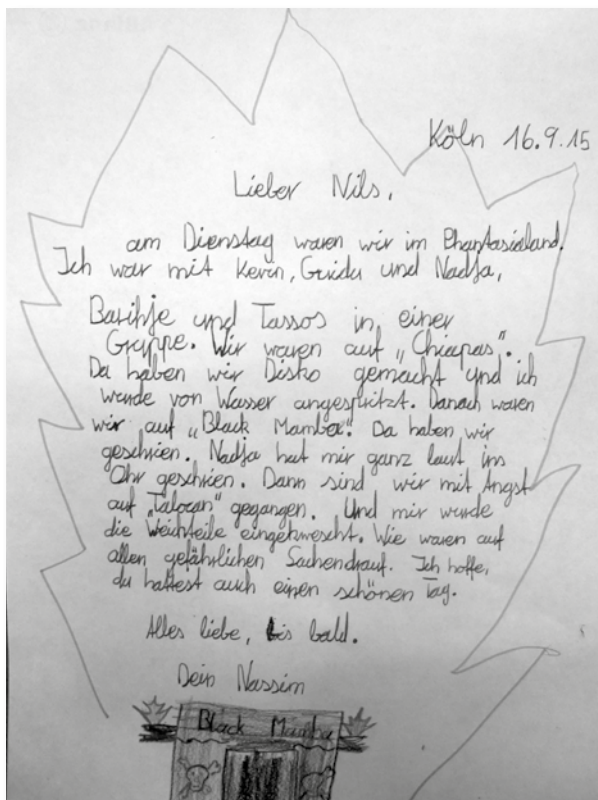 Köln 16.9.15
Lieber Nils,
am Dienstag waren wir im Phantasialand.
Ich war mit Kevin, Guidu und Nadja,
Barihje und Tassos in einer
Gruppe. Wir waren auf „Chiapas“.
Da haben wir Disko gemacht und ich
wurde von Wasser angespritzt. Danach waren
wir auf „Black Mamba“. Da haben wir
geschrien. Nadja hat mir ganz laut ins
Ohr geschrien. Dann sind wir mit Angst
auf „Talocan“ gegangen. Und mir wurde
die Weichteile eingekwescht. Wie waren auf
allen gefährlichen Sachendrauf. Ich hoffe,
du hattest auch einen schönen Tag.
Alles liebe, bis bald.
Dein Nassim
Black Mamba